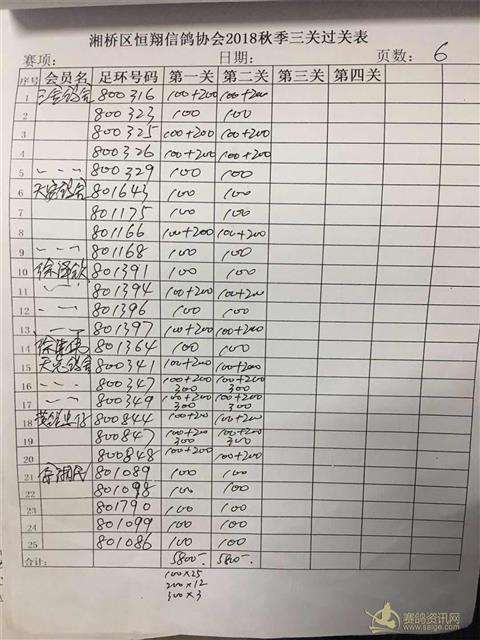 湘桥区恒翔信鸽协会2018秋季三关过关表
赛项: 日期: 页数: 6
序号 会员名 足环号码 第一关 第二关 第三关 第四关
1 800316 100+200 100+200
2 800323 100 100
3 800325 100+200 100+200
4 800326 100+200 100+200
5 800329 100 100
6 801643 100 100
7 801175 100 100
8 801166 100+200 100+200
9 801168 100 100
10 801391 100 100
11 801394 100+200 100+200
12 801396 100 100
13 801397 100+200 100+200
14 801364 100 100
15 800341 100+200 100+200
16 800347 100+200 300 100+200 300
17 800349 100+200 300 100+200 300
18 800844 100+200 100+200
19 800847 100+200 300 100+200 300
20 800848 100+200 100+200
21 801089 100 100
22 801098 100 100
23 801790 100 100
24 801099 100 100
25 801086 100 100
合计: 5800- 5800-
100×25
200×12
300×3
赛鸽资讯网
www.saige.com